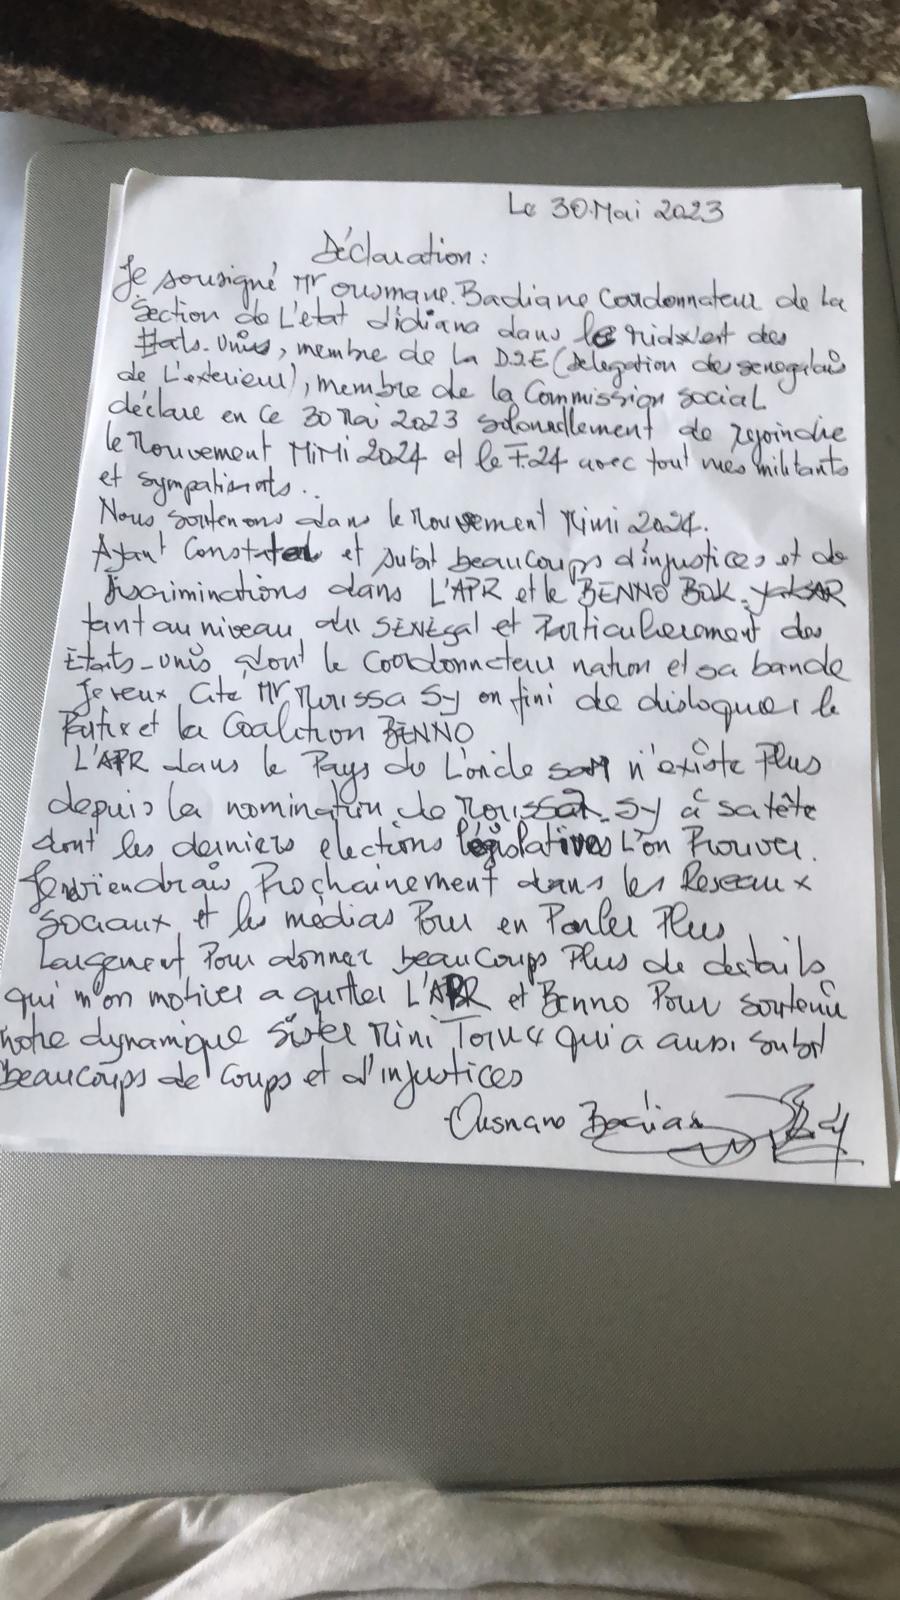 Le 30.Mai 2023
Déclaration:
Je sousigné Mr ousmane. Badiane Coordonnateur de La
Section de L'état d'idiana dans le Midwest des
Etats-Unis, membre de la DSE (Delegation des senegalais
de L'exterieur), membre de la Commission social
déclare en ce 30 Mai 2023 solonellement de rejoindre
le Mouvement MiMi 2024 et le F.24 avec tout mes militants
et sympatisants..
Nous soutenons dans le Mouvement Mimi 2024.
Ayant Constaté et subit beaucoups d'injustices et de
Discriminctions dans L'APR et le BENNO BOK-YakSAR
tant au niveau du SENEgal et Particulierement des
Etats-Unis dont le Coordonncteur nation et sa bande
Je veux Cité Mr Moussa Sy on fini de disloquer le
Partie et la Coalition BENNO
L'APR dans le Pays de L'oncle sam n'existe Plus
depuis la nomination de Moussa Sy à sa tête
dont les derniers elections législatives L'on Prouver.
Je viendrais Prochainement dans les Reseaux
Sociaux et les médias Pour en Parler Plus
Largement Pour donner beaucoups Plus de details
qui m'on motiver a quitter L'APR et Benno Pour soutenir
notre dynamique Sister Mimi Toure qui a aussi Subit
beaucoups de coups et d'injustices
Ousmane Badiane